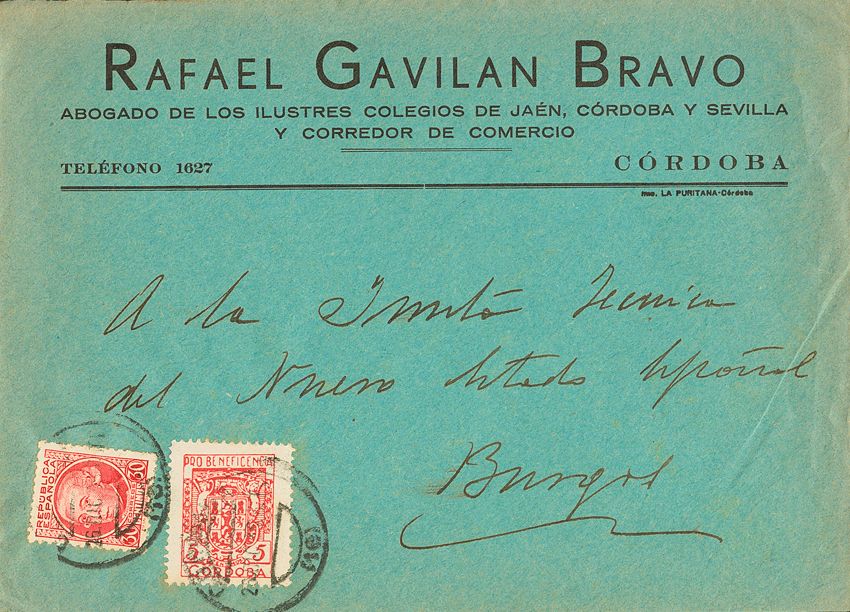 RAFAEL GAVILAN BRAVO
ABOGADO DE LOS ILUSTRES COLEGIOS DE JAÉN, CÓRDOBA Y SEVILLA
Y CORREDOR DE COMERCIO
TELÉFONO 1627
CÓRDOBA
Imp. LA PURITANA-Córdoba
A la Junta Tecnica
del Nuevo Estado Español
Burgos
REPÚBLICA
ESPAÑOLA
30
30
PRO BENEFICENCIA
5 5
CÓRDOBA